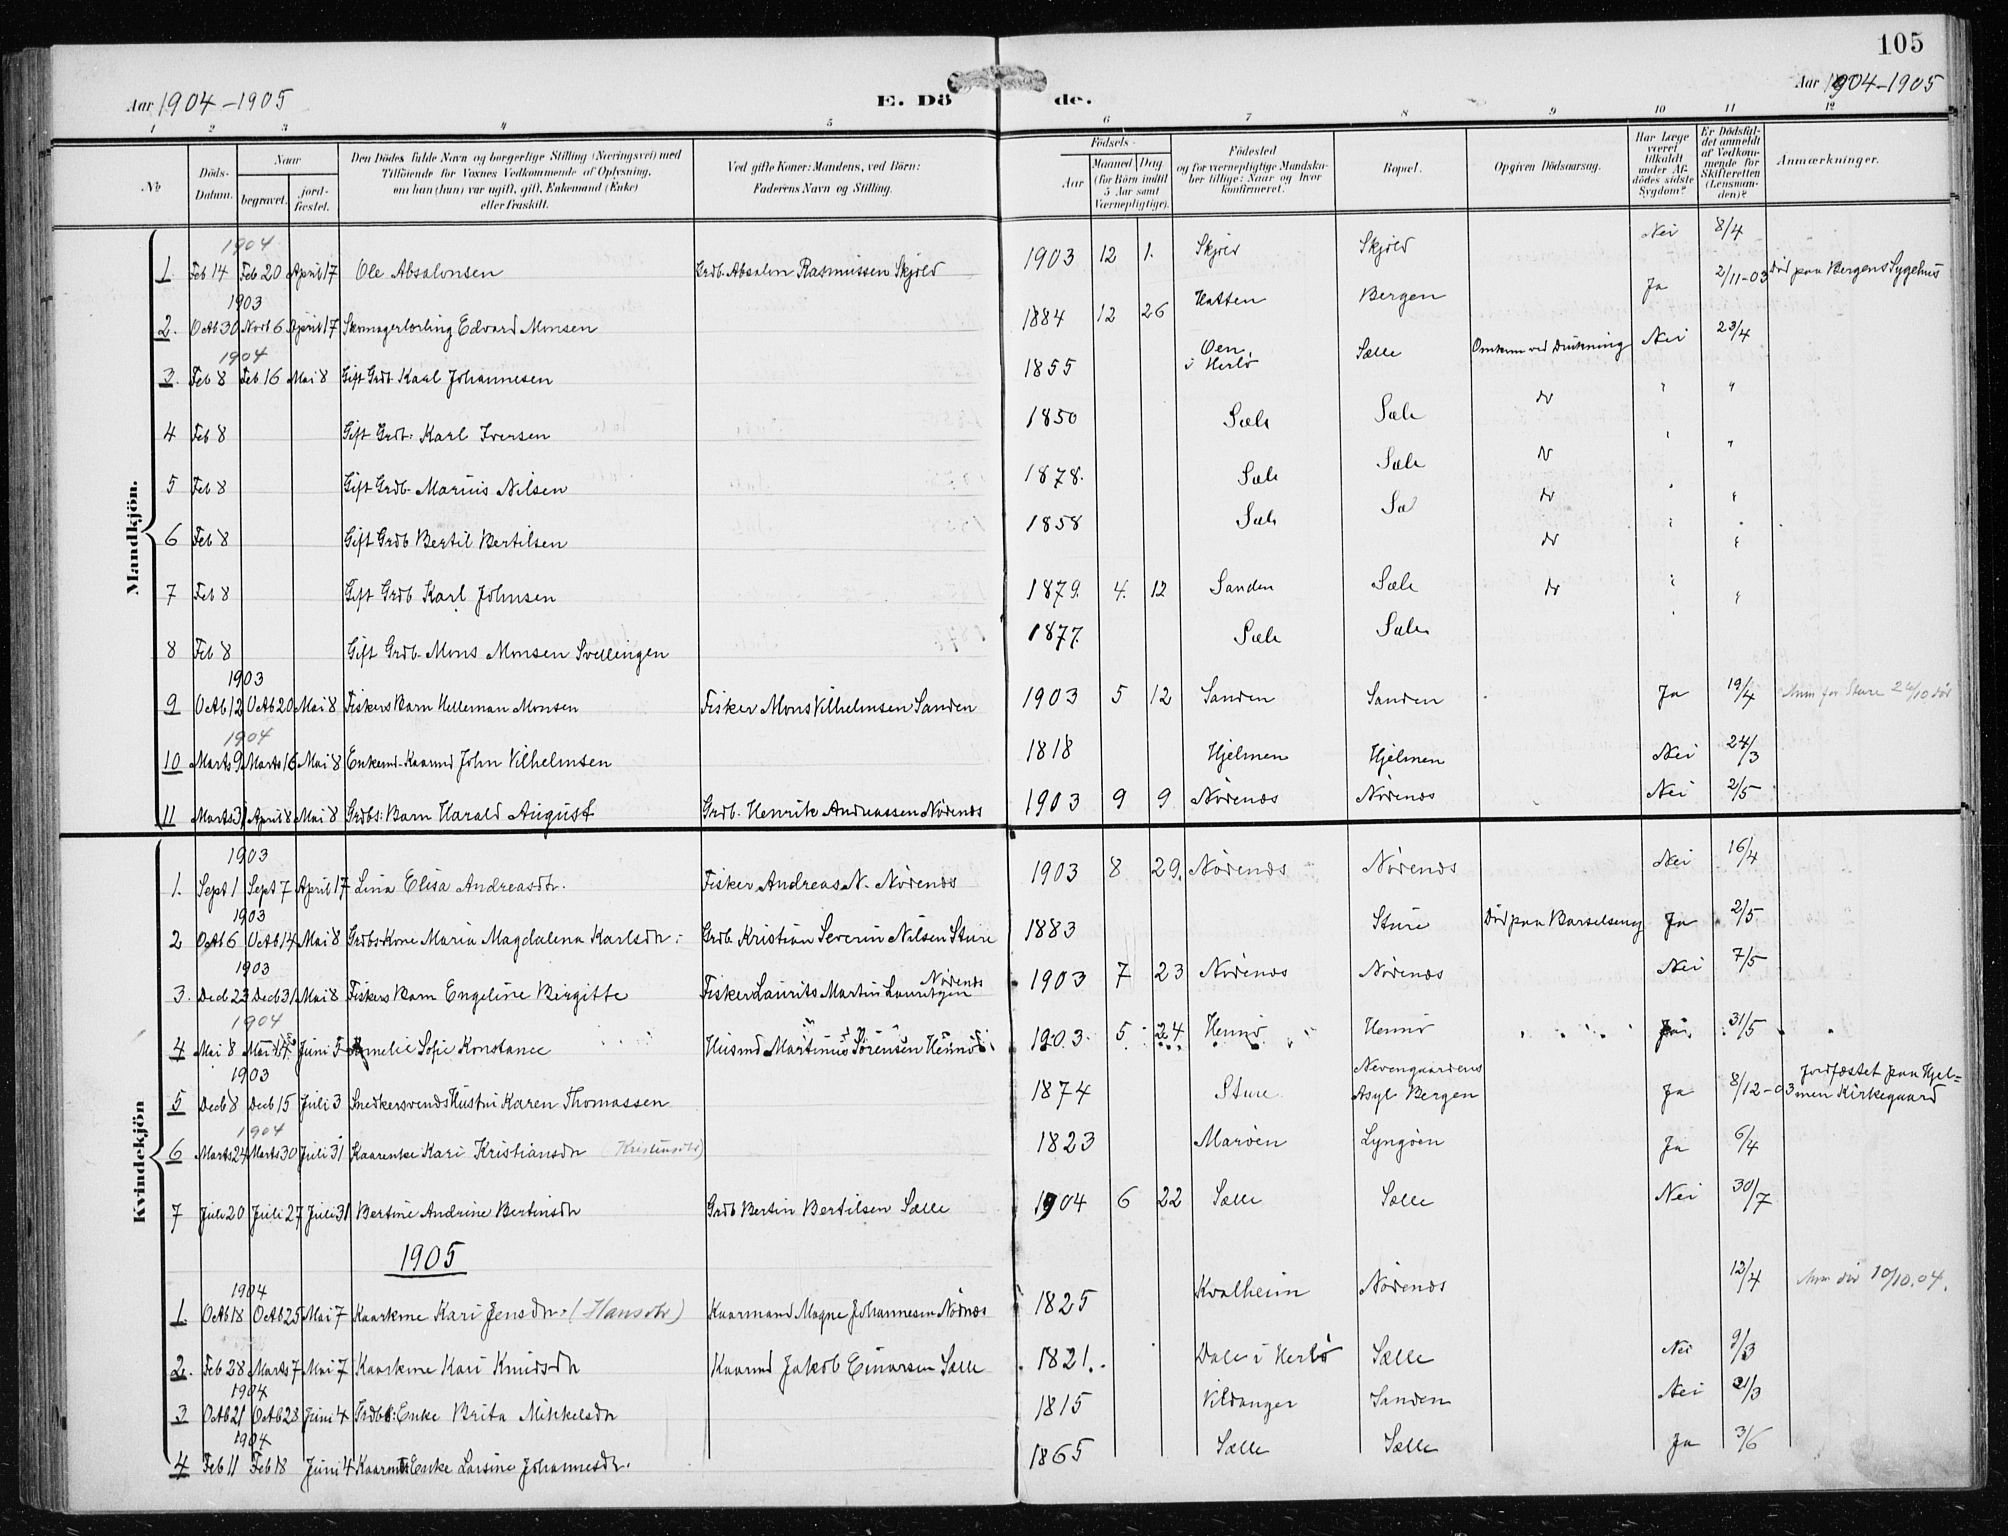 105
Aar 1904-1905
E. Dö de.
Aar 1904-1905
1 2 3 4 5 6 7 8 9 10 11 12
No
Döds-Datum.
Naar
begravet.
jord-fæstet.
Den Dödes fulde Navn og borgerlige Stilling (Næringsvei) med
Tilföiende for Voxnes Vedkommende af Oplysning,
om han (hun) var ugift, gift, Enkemand (Enke)
eller fraskilt.
Ved gifte Koner: Mandens, ved Börn:
Faderens Navn og Stilling.
Födsels-
Aar
Maaned Dag
(for Börn indtil
5 Aar samt
Værnepligtige).
Födested
og for værnepligtige Mandska-
ber tillige: Naar og hvor
konfirmeret.
Bopæl.
Opgiven Dödsaarsag.
Har Læge
været
tilkaldt
under Af-
dödes sidste
Sygdom?
Er Dödsfal-
det anmeldt
af Vedkom-
mende for
Skifteretten
(Lensman-
den)?
Anmærkninger.
Mandkjön.
1904
1. Feb 14 Feb 20 April 17 Ole Absalonsen Grdb. Absalon Rasmussen Skjold 1903 12 1. Skjold Skjold Nei 8/4
1903
2. Octb 30 Novb 6 April 17 Skomagerlærling Edvard Monsen 1884 12 26 Hatten Bergen Ja 2/11-03 Död paa Bergens Sygehus
1904
3. Feb 8 Feb 16 Mai 8 Gift Grdb Karl Johannesen 1855 Oen i Herlö Sælle Omkom ved Drukning Nei 23/4
4 Feb 8 Gift Grdb. Karl Iversen 1850 Sæle Sæle do " "
5 Feb 8 Gift Grdb. Marius Nilsen 1878. Sæle Sæle do " "
6 Feb 8 Gift Grdb Bertil Bertilsen 1858 Sæle Sæ do " "
7 Feb 8 Gift Grdb Karl Johnsen 1879. 4. 12 Sanden Sæle do " "
8 Feb 8 Gift Grdb. Mons Monsen Svellingen 1877. Sæle Sæle do " "
1903
9 Octb 12 Octb 20 Mai 8 Fiskers Barn Helleman Monsen Fisker Mons Vilhelmsen Sanden 1903 5 12 Sanden Sanden Ja 19/4
1904
10 Marts 9 Marts 16 Mai 8 Enkemd. Kaarmd John Vilhelmsen 1818 Hjelmen Hjelmen Nei 24/3
11 Marts 31 April 8 Mai 8 Grdbs: Barn Harald August Grdb. Henrik Andreassen Nörenæs 1903 9 9 Nörenæs Nörenæs Nei 2/5
Kvindekjön
1903
1. Sept 1 Sept 7 April 17 Lina Elisa Andreasdtr. Fisker Andreas N. Nörenæs 1903 8 29. Nörenæs Nörenæs Nei 16/4
1903
2 Octb 6 Octb 14 Mai 8 Grdbs Kone Maria Magdalena Karlsdtr: Grdb Kristian Severin Nilsen Sture 1883 Sture Död paa Barselseng Ja 2/5
1903
3. Decb 23 Decb 31 Mai 8 Fiskers Barn Engeline Birgitte Fisker Laurits Martin Lauritzen Nörenæs 1903 7 23 Nörenæs Nörenæs Nei 7/5
1904
4 Mai 8 Mai 14 Juni 5 Amelie Sofie Konstance Husmd Martinus Sörensen Hennö 1903. 5 24 Hennö Hennö Ja 31/5
1903
5 Decb 8 Decb 15 Juli 3 Snedkersvends Hustru Karen Thomassen 1874 Sture Nevengaardens Asyl Bergen Ja 8/12-03 Jordfæstet paa Hjel=
men Kirkegaard
1904
6 Marts 24 Marts 30 Juli 31 Kaarenke Kari Kristiansdtr 1823 Maröen Lyngöen Ja 6/4
7 Juli 20 Juli 27 Juli 31 Bertine Andrine Bertinsdtr Grdb Bertin Bertilsen Sælle 1904 6 22 Sælle Sælle Nei 30/7
1905
1904
1. Octb 18 Octb 25 Mai 7 Kaarkone Kari Jensdtr. (Hansdtr) Kaarmand Magne Johannesen Nörenæs 1825 Kvalheim Nörenæs 12/4 10/10.04.
2. Feb 28 Marts 7 Mai 7 Kaarkone Kari Knudsdtr Kaarmd Jakob Einarsen Sælle 1821. Dale i Herlö Sælle Nei 9/3
1904
3 Octb 21 Octb 28 Juni 4 Grdbs: Enke Brita Mikkelsdtr 1815 Vildanger Sanden Nei 21/3
1904
4 Feb 11 Feb 18 Juni 4 Kaarmds Enke Larsine Johannesdtr. 1865 Sælle Sælle Ja 3/6